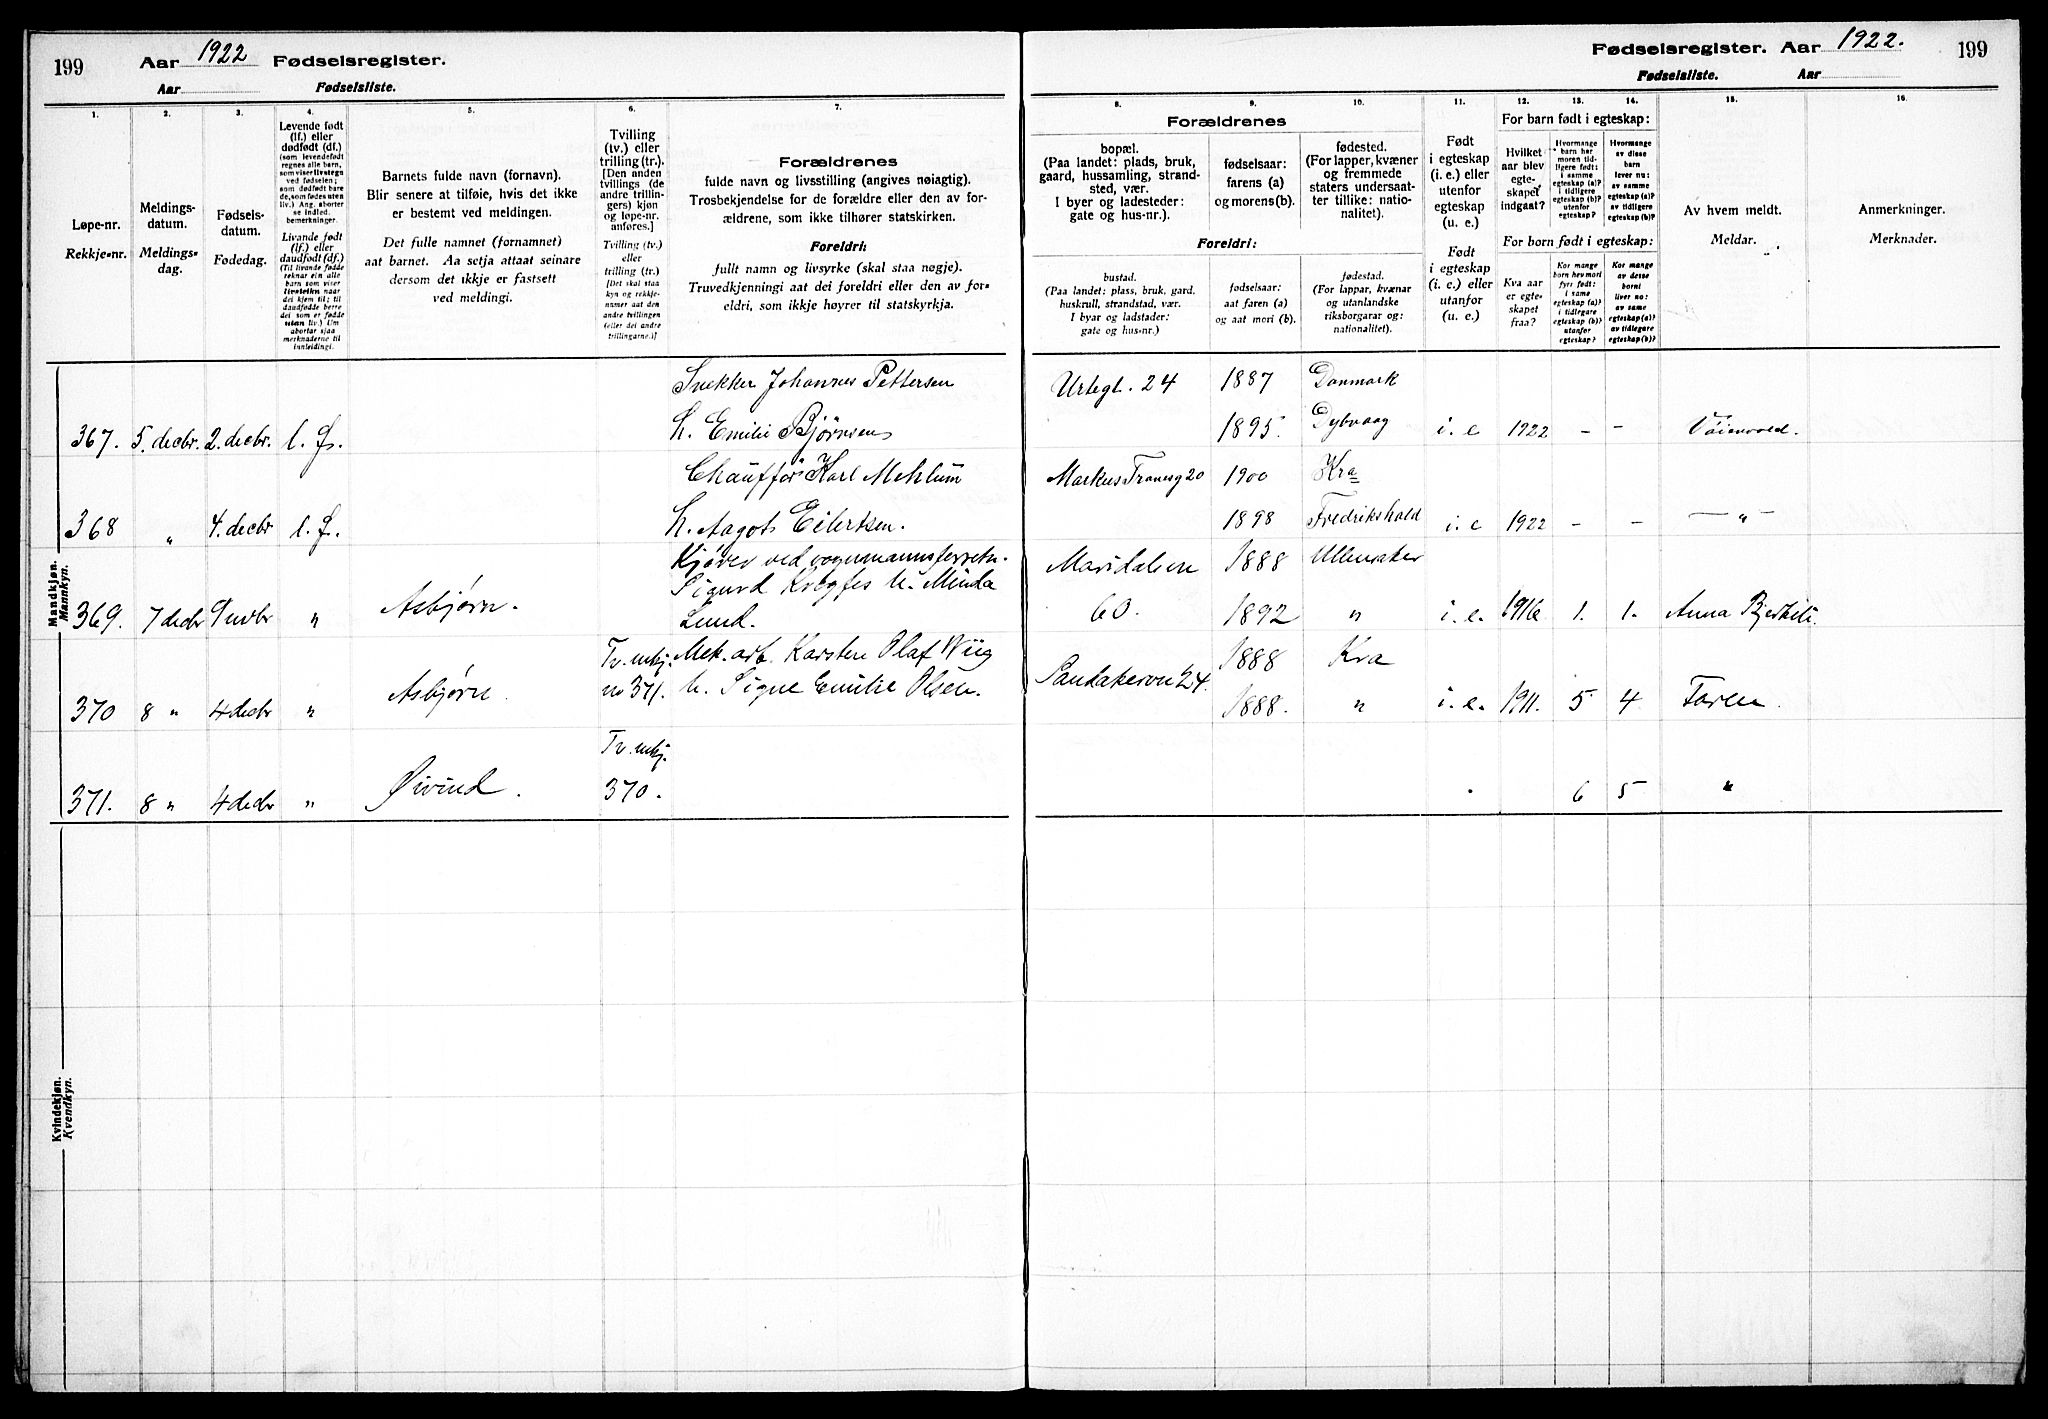 199
Aar 1922 Fødselsregister.
Aar Fødselsliste.
Fødselsregister. Aar 1922.
199
Fødselsliste. Aar
1.
Løpe-nr.
Rekkje-nr.
2.
Meldings-
datum.
Meldings-
dag.
3.
Fødsels-
datum.
Fødedag.
4.
Levende født
(lf.) eller
dødfødt (df.)
(som levendefødt
regnes alle barn,
som viser livstegn
ved fødselen;
som dødfødt bare
de, som fødes uten
liv.) Ang. aborter
se indled.
bemerkninger.
Livande født
(lf.) eller
daudfødt (df.)
(Til livande fødde
reknar ein alle
barn som viser
livsteikn naar
dei kjem til; til
daudfødde berre
dei som er fødde
utan liv.) Um
abortar sjaa
merknaderne til
innleidingi.
5.
Barnets fulde navn (fornavn).
Blir senere at tilføie, hvis det ikke
er bestemt ved meldingen.
Det fulle namnet (fornamnet)
aat barnet. Aa setja attaat seinare
dersom det ikkje er fastsett
ved meldingi.
6.
Tvilling
(tv.) eller
trilling (tr.).
[Den anden
tvillings (de
andre trillin-
gers) kjøn
og løpe-nr.
anføres.]
Tvilling (tv.)
eller
trilling (tr.)
[Det skal staa
kyn og rekkje-
nummer aat den
andre tvillingen
(eller dei andre
trillingarne.)]
7.
Forældrenes
fulde navn og livsstilling (angives nøiagtig).
Trosbekjendelse for de forældre eller den av for-
ældrene, som ikke tilhører statskirken.
Foreldri:
fullt namn og livsyrke (skal staa nøgje).
Truvedkjenningi aat dei foreldri eller den av for-
eldri, som ikkje høyrer til statskyrkja.
Forældrenes
8.
bopæl.
(Paa landet: plads, bruk,
gaard, hussamling, strand-
sted, vær.
I byer og ladesteder:
gate og hus-nr.).
9.
fødselsaar:
farens (a)
og morens (b).
10.
fødested.
(For lapper, kvæner
og fremmede
staters undersaat-
ter tillike: natio-
nalitet).
Foreldri:
bustad.
(Paa landet: plass, bruk, gard,
huskrull, strandstad, vær.
I byar og ladstader:
gate og hus-nr.)
fødselsaar:
aat faren (a)
og aat mori (b).
fødestad.
(For lappar, kvænar
og utanlandske
riksborgarar og:
nationalitet).
11.
Født
i egteskap
(i. e.) eller
utenfor
egteskap
(u. e.)
Født
i egteskap
(i. e.) eller
utanfor
(u. e.)
For barn født i egteskap:
12.
Hvilket
aar blev
egte-
skapet
indgaat?
13.
Hvormange
barn har
moren tid-
ligere født:
i samme
egteskap (a)?
i tidligere
egteskap (b)?
utenfor
egteskap?
14.
Hvormange
av disse
barn
lever nu:
av samme
egteskap (a)?
av tidligere
egteskap (b)?
For born født i egteskap:
Kva aar
er egte-
skapet
fraa?
Kor mange
barn hev mori
fyrr født:
i same
egteskap (a)?
i tidlegare
egteskap (b)?
utanfor
egteskap?
Kor mange
av desse
borni
liver no:
av same
egteskap (a)?
av tidlegare
egteskap (b)?
15.
Av hvem meldt.
Meldar.
16.
Anmerkninger.
Merknader.
Mandkjøn.
Mannkyn.
Snekker Johannes Pettersen Urtegt. 24 1887 Danmark
367. 5. decbr. 2. decbr. l. f. h. Emilie Bjørnsen 1895. Dybvaag i. e 1922 - -
Chauffør Karl Mehlum Markus Tranesg 20 1900 Kra
368 " 4. decbr l. f. h. Aagot Eilertsen. 1898 Fredrikshald i. e 1922 - - — " —
Kjører ved vognmannsforretn. Maridalsvn 1888 Ullensaker
Sigurd h. Minda
369. 7 decbr 9 nvbr " Asbjørn. Lund. 60. 1892 " i. e. 1916 1. 1. Anna
Tv. mkj. Mek. arb. Karsten Olaf Wiig 1888 Kra
370 8 " 4 decbr " Asbjørn. no 371. h. Signe Emilie Olsen. Sandakervn 24. 1888. " i. e. 1911. 5 4 Faren.
Tv. mkj.
371. 8 " 4 decbr " Øivind. 370. 6 5 "
Kvindekjøn.
Kvendkyn.